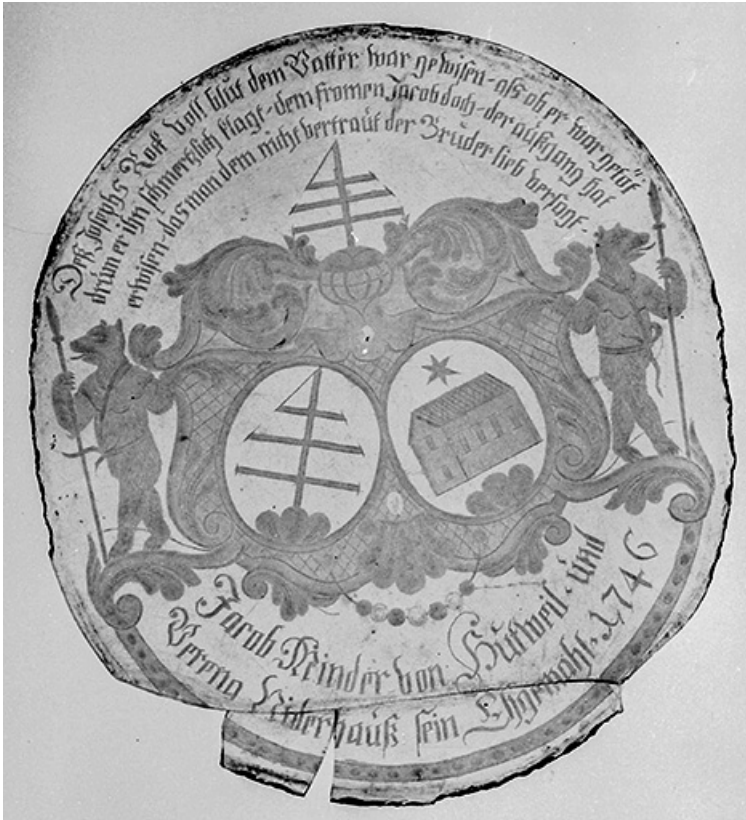 Deß Josephs Rok voll blut dem Vatter war gewisen-als ob er war getöt
drum er ihn schmertzlich klagt-dem fromen Jacob doch-der außgang hat
erwisen-das man dem nicht vertraut der Bruder lieb versagt-
Jacob Minder von Hutweil-und
Verena Niderhauß sein Ehgemahl-1746